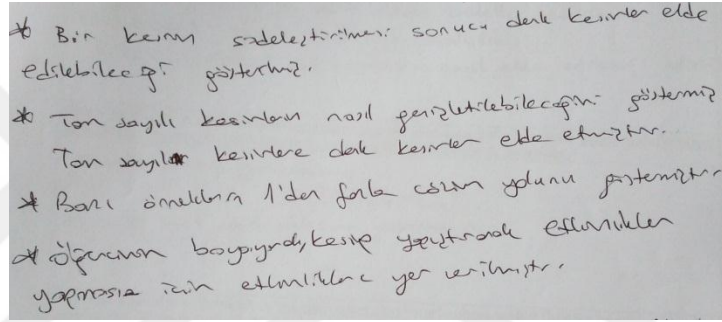 * Bir kesrin sadeleştirilmesi sonucu denk kesirler elde
edilebileceği göstermiş.
* Tam sayılı kesirlerin nasıl genişletilebileceğini göstermiş
Tam sayılı kesirlere denk kesirler elde etmiştir.
* Bazı örneklerin 1'den fazla çözüm yolunu göstermiştir.
* Öğrencinin boyayarak, kesip yapıştırarak etkinlikler
yapması için etkinliklere yer verilmiştir.